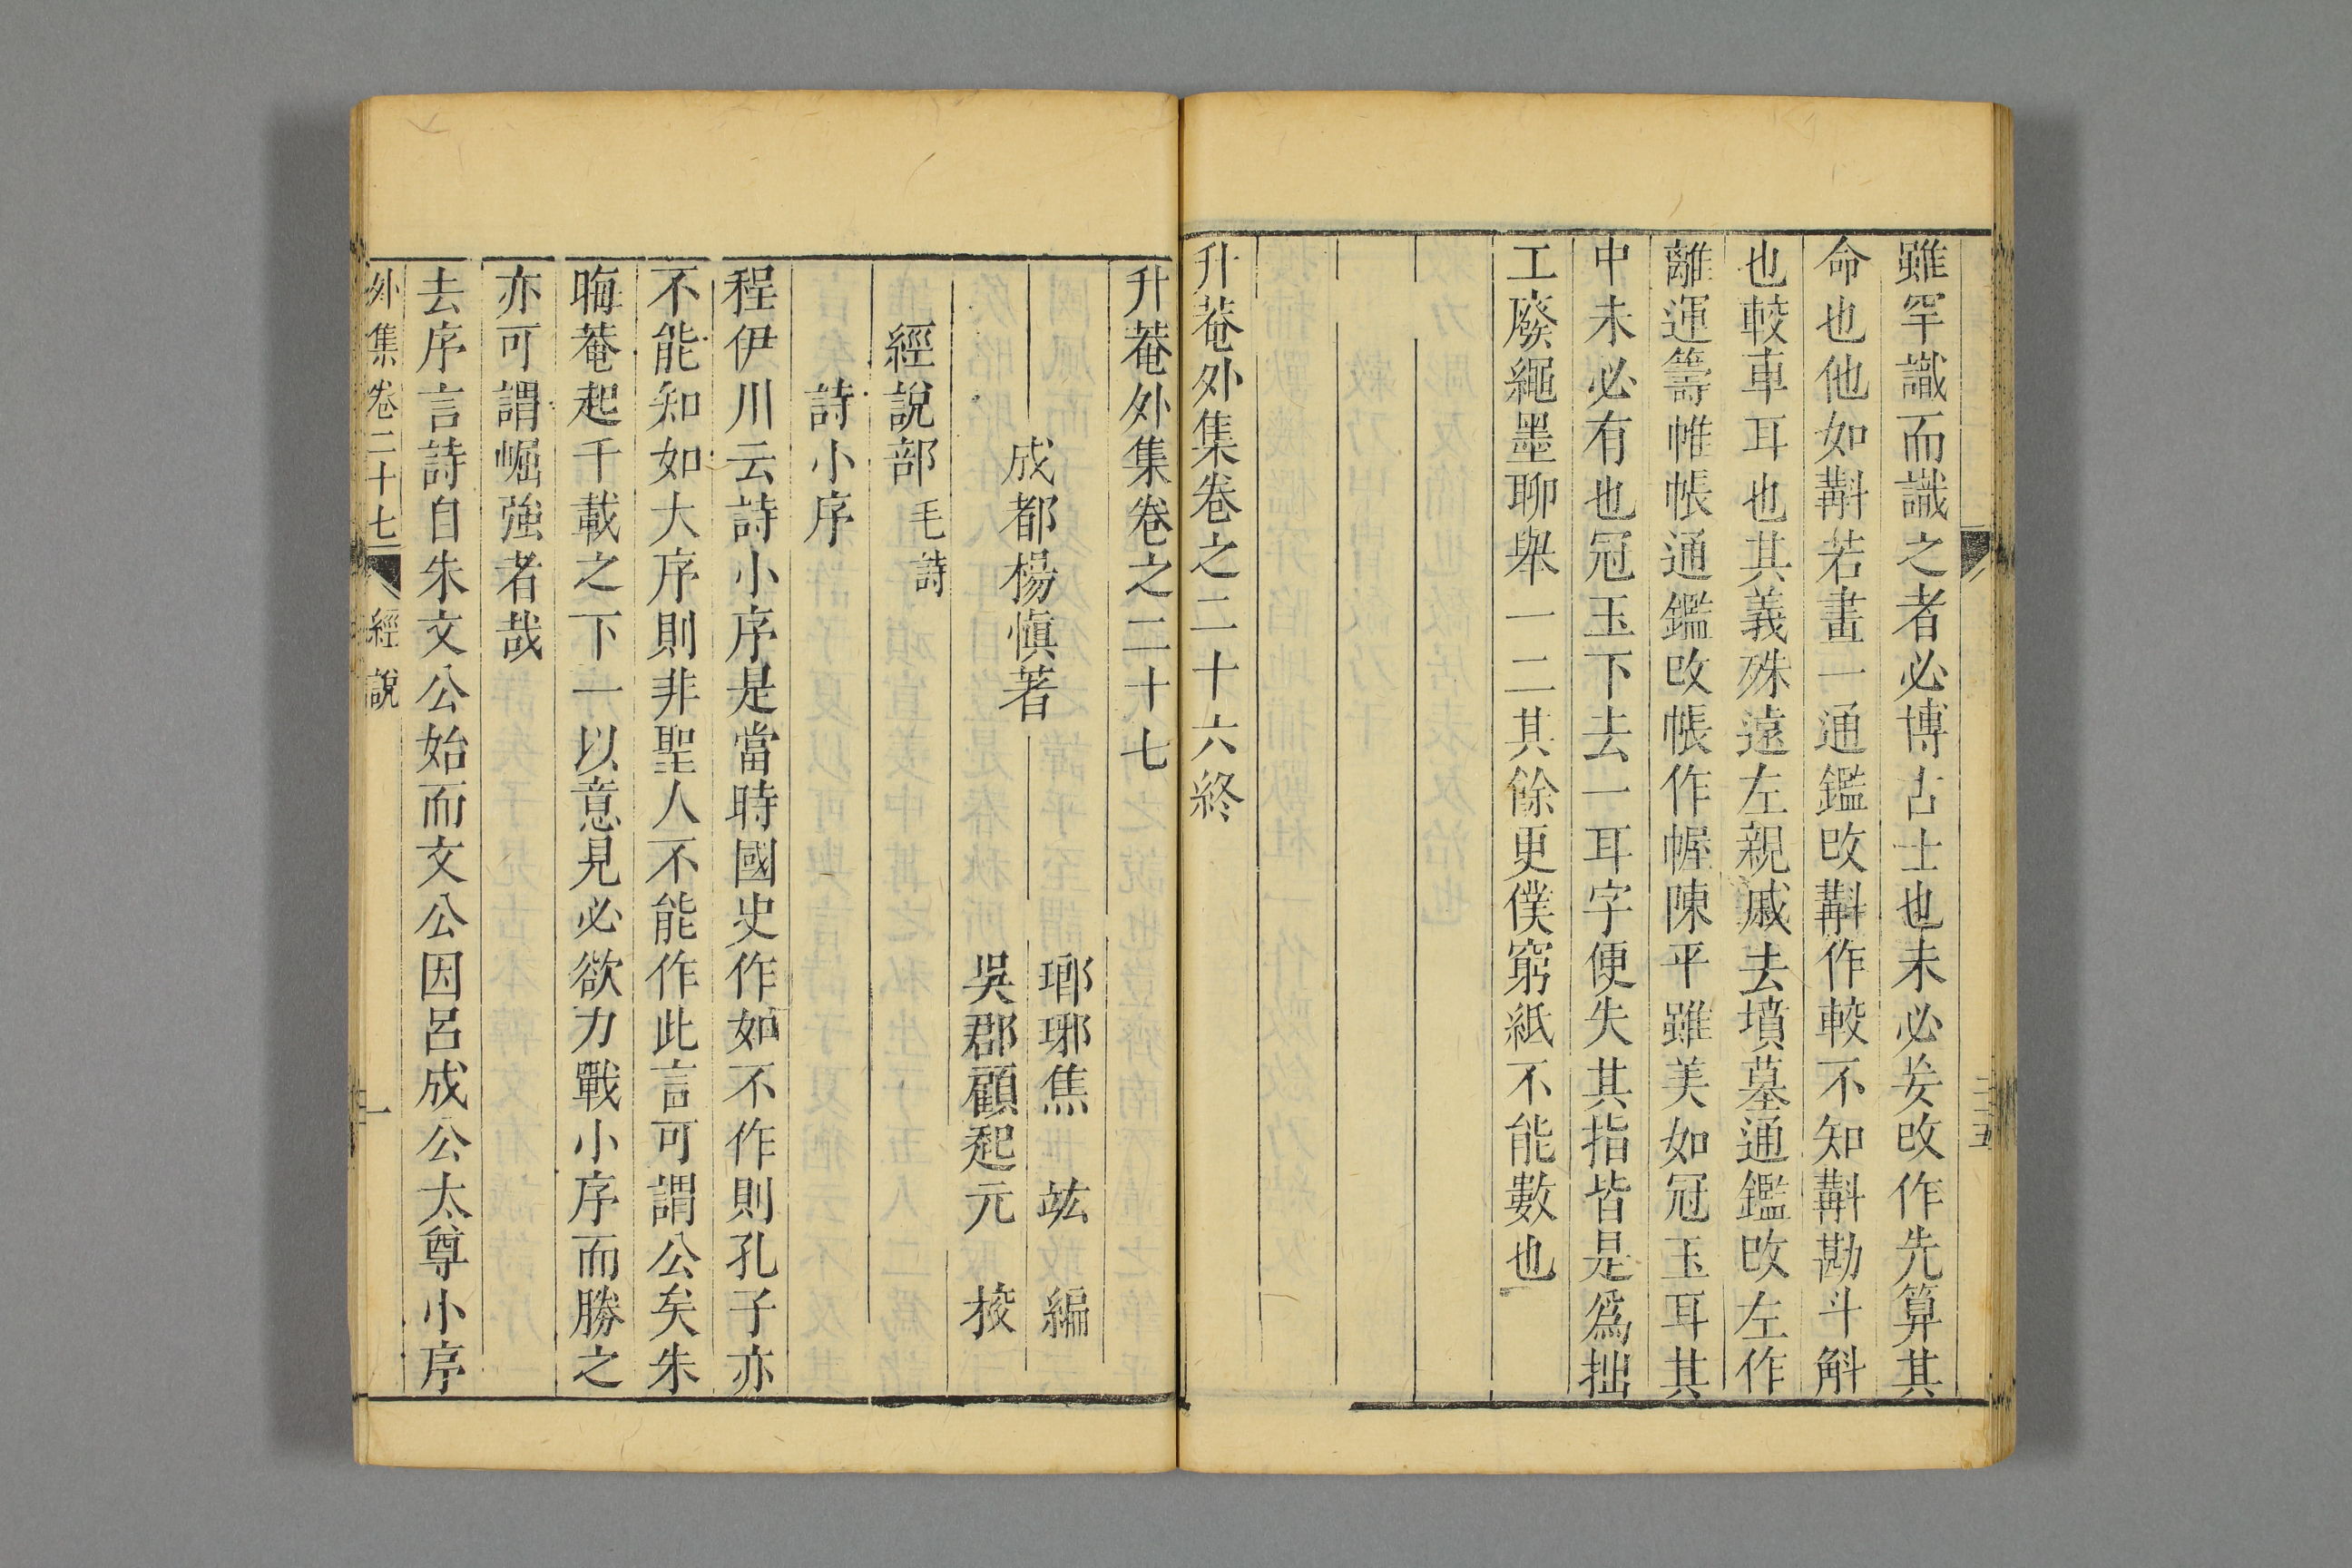 雖罕識而識之者必博古士也未必妄改作先算其
命也他如斠若畫一通鑑改斠作較不知斠勘斗斛
也較車耳也其義殊遠左親戚去墳墓通鑑改左作
離運籌帷帳通鑑改帳作幄陳平雖美如冠玉耳其
中未必有也冠玉下去一耳字便失其指皆是為拙
工廢繩墨聊舉一二其餘更僕窮紙不能數也
升菴外集卷之二十六終
二十五
升菴外集卷之二十七
成都楊慎著
瑯琊焦竑編
吳郡顧起元校
經說部 毛詩
詩小序
程伊川云詩小序是當時國史作如不作則孔子亦
不能知如大序則非聖人不能作此言可謂公矣朱
晦菴起千載之下一以意見必欲力戰小序而勝之
亦可謂崛強者哉
去序言詩自朱文公始而文公因呂成公太尊小序
外集卷二十七 經說 一